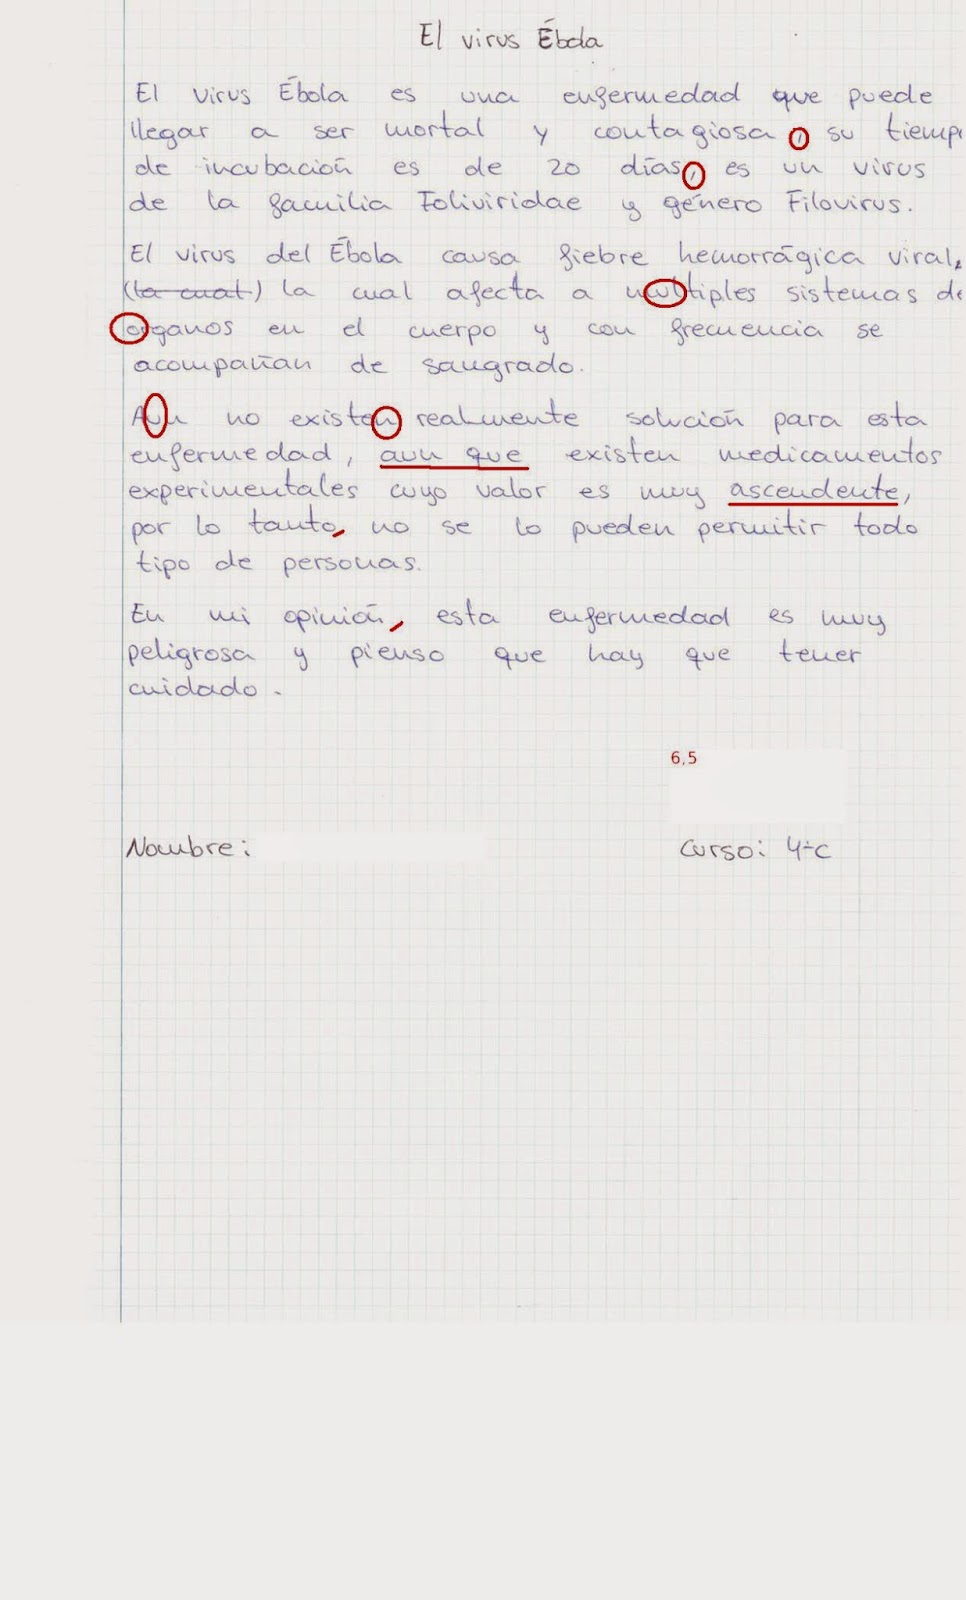 El virus Ébola
El virus Ébola es una enfermedad que puede
llegar a ser mortal y contagiosa, su tiemp
de incubación es de 20 días, es un virus
de la familia Foliviridae y género Filovirus.
El virus del Ébola causa fiebre hemorrágica viral,
(la cual) la cual afecta a multiples sistemas de
organos en el cuerpo y con frecuencia se
acompañan de sangrado.
Aun no existen realmente solución para esta
enfermedad, aun que existen medicamentos
experimentales cuyo valor es muy ascendente,
por lo tanto, no se lo pueden permitir todo
tipo de personas.
En mi opinión, esta enfermedad es muy
peligrosa y pienso que hay que tener
cuidado.
6,5
Nombre: Curso: 4ºc